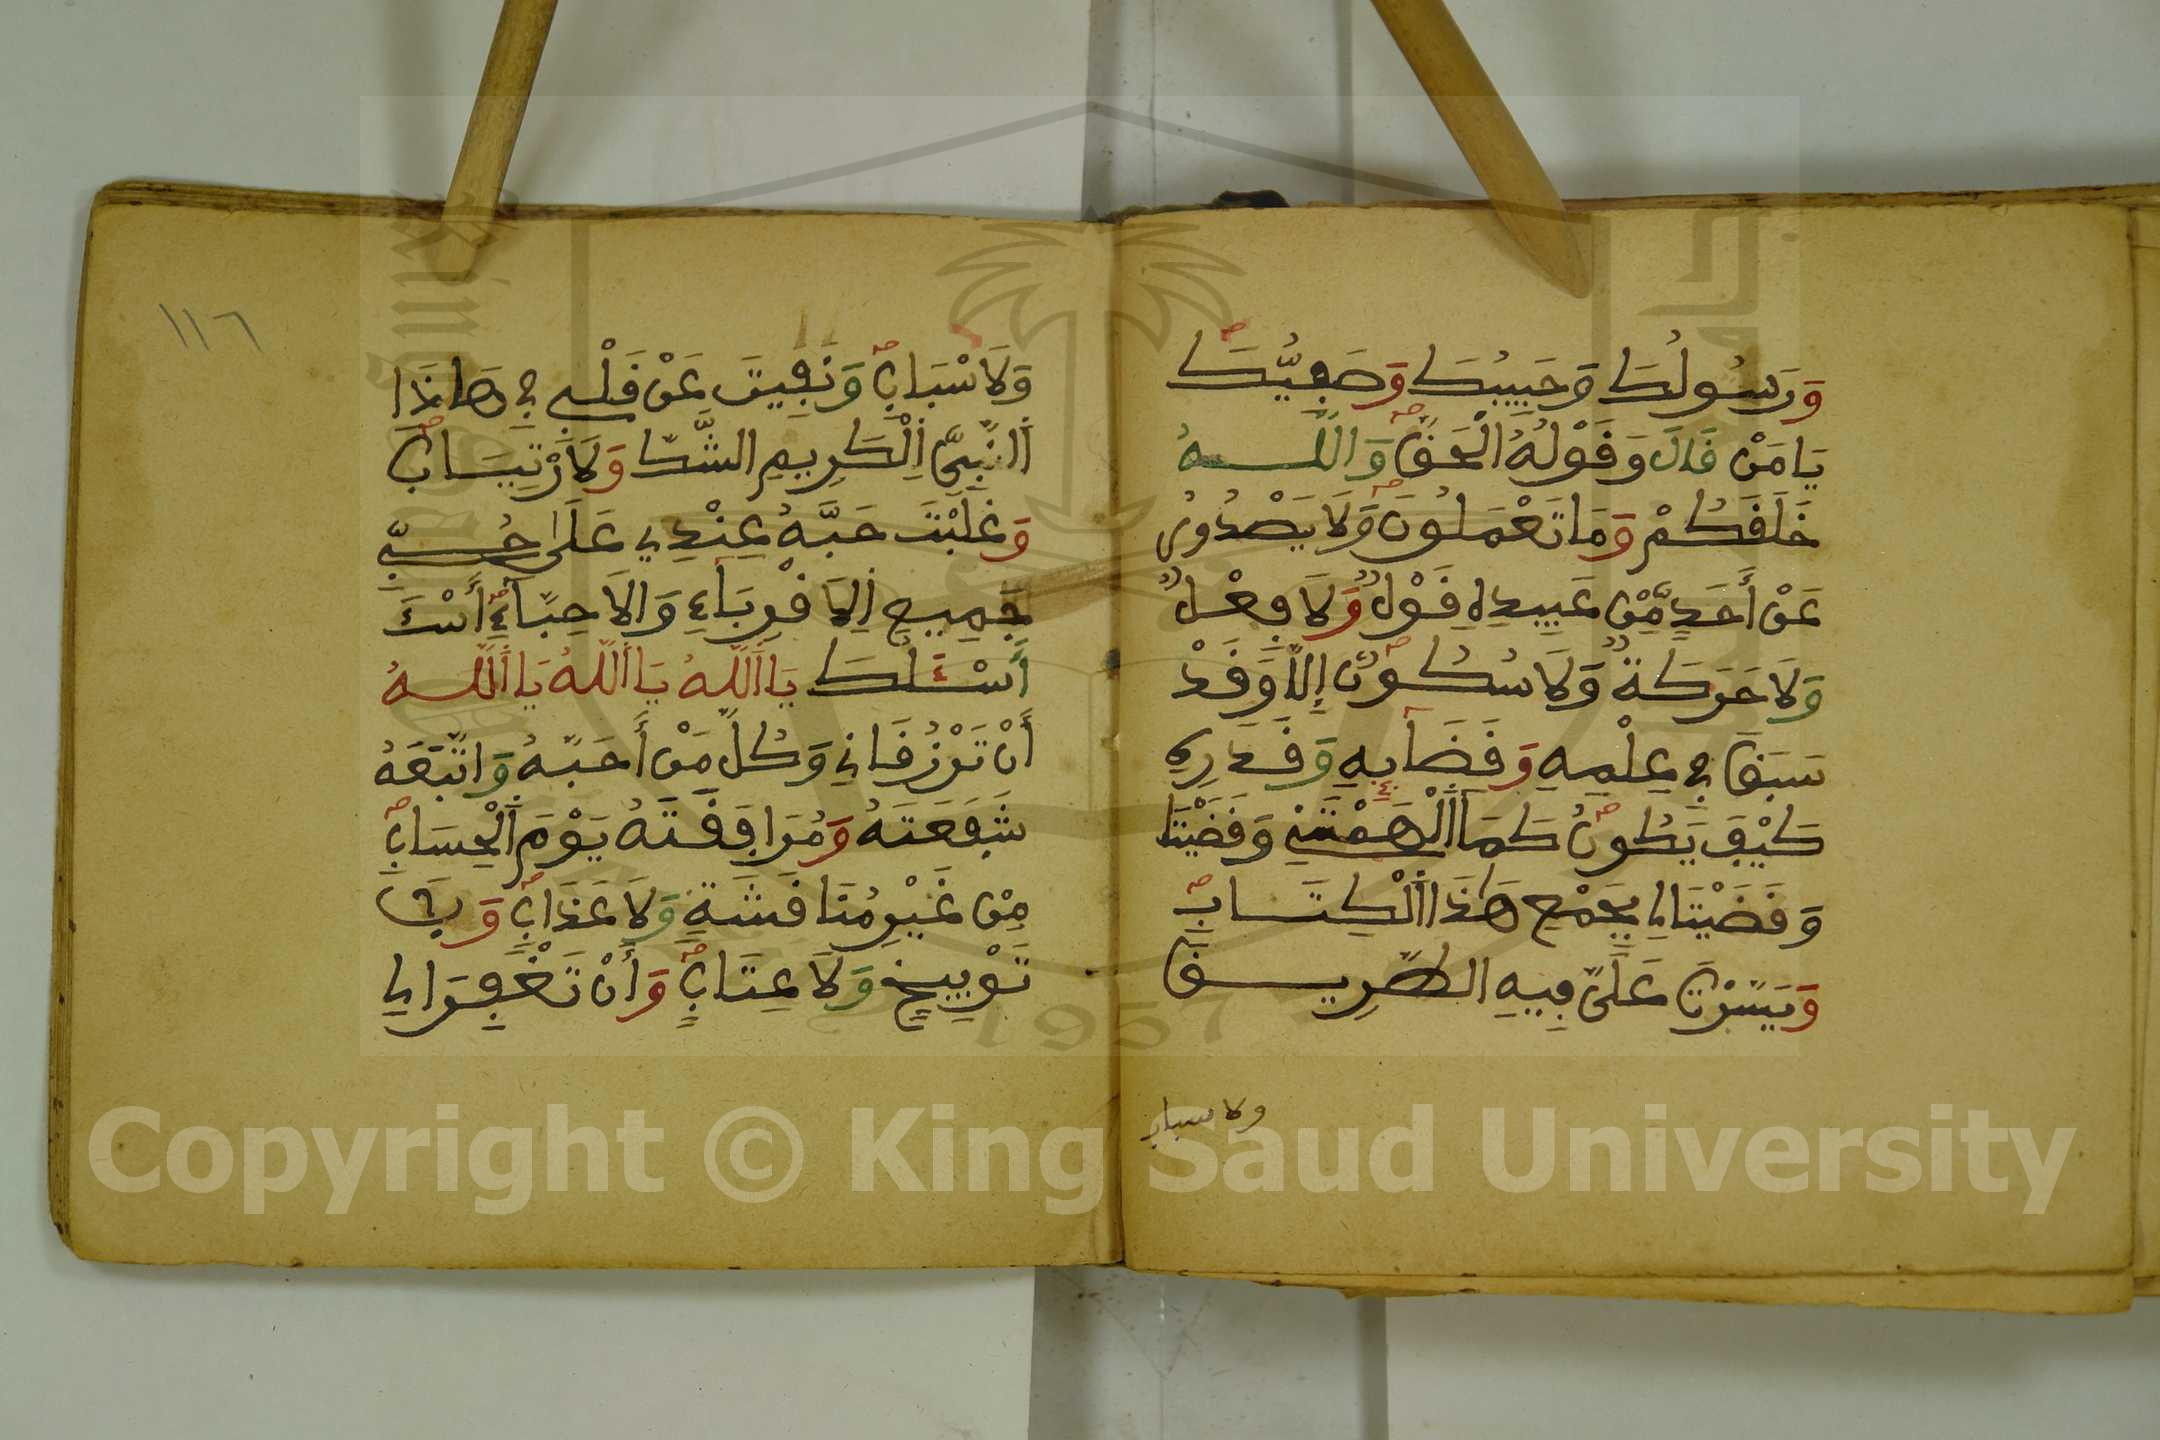 وَرَسُولُكَ وَحَبِيبُكَ وَصَفِيُّكَ
يَا مَنْ قَالَ وَقَوْلُهُ الْحَقُّ وَاللَّهُ
خَلَقَكُمْ وَمَا تَعْمَلُونَ وَلَا يَصْدُرُ
عَنْ أَحَدٍ مِّنْ عَبِيدِهِ قَوْلٌ وَلَا فِعْلٌ
وَلَا حَرَكَةٌ وَلَا سُكُونٌ إِلَّا وَقَدْ
سَبَقَ فِي عِلْمِهِ وَقَضَآئِهِ وَقَدَرِهِ
كَيْفَ يَكُونُ كَمَا أَلْهَمْتَنِي وَقَضَيْتَ
وَقَضَيْتَ لِي بِجَمْعِ هَذَا الْكِتَابِ
وَيَسَّرْتَ عَلَيَّ فِيهِ الطَّرِيقَ
ولاسباب
١١٦
وَلَاسْبَابَ وَنَفَيْتَ عَنْ قَلْبِي فِي هَاذَا
النَّبِيِّ الْكَرِيمِ الشَّكَّ وَلَارْتِيَابَ
وَغَلَّبْتَ حُبَّهُ عِنْدِي عَلَى حُبِّ
جَمِيعِ الَاقْرِبَآءِ وَالَاحِبَّآءِ
أَسْئَلُكَ يَا اَللَّهُ يَا اَللَّهُ يَا اَللَّهُ
أَنْ تَرْزُقَنِي وَكُلَّ مَنْ أَحَبَّهُ وَاتَّبَعَهُ
شَفَعَتَهُ وَمُرَافَقَتَهُ يَوْمَ الْحِسَابِ
مِنْ غَيْرِ مُنَاقَشَةٍ وَلَا عَذَابٍ وَلَا
تَوْبِيخٍ وَلَا عِتَابٍ وَأَنْ تَغْفِرَ لِي
Copyright © King Saud University
1957